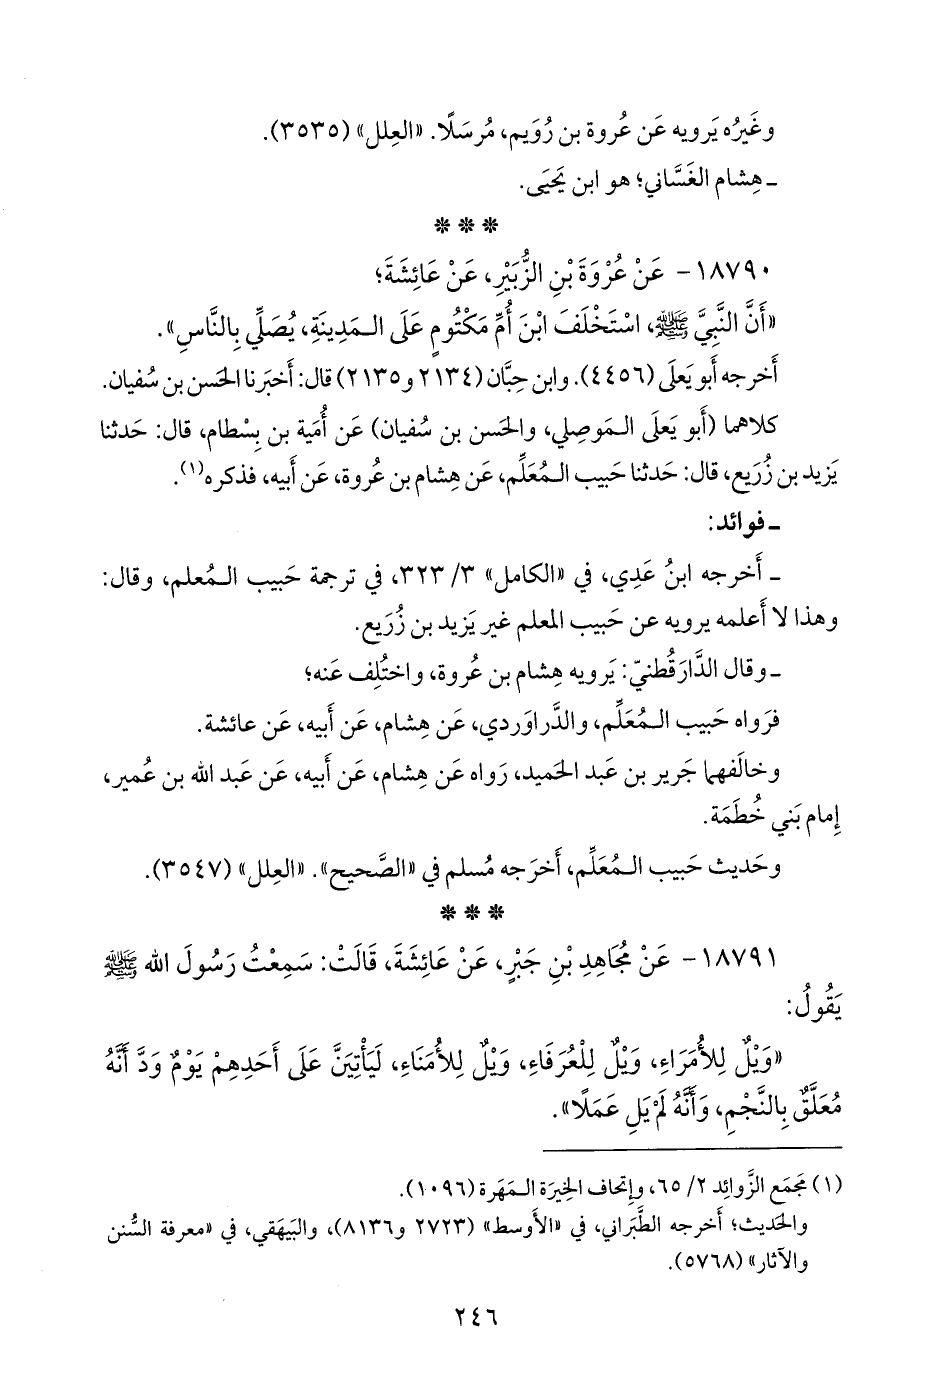 وغَيرُه يَرويه عَن عُروة بن رُوَيم، مُرسَلًا. «العِلل» (٣٥٣٥).
ـ هِشام الغَسَّاني؛ هو ابن يَحيَى.
* * *
١٨٧٩٠- عَنْ عُرْوَةَ بْنِ الزُّبَيْرِ، عَنْ عَائِشَةَ؛
«أَنَّ النَّبِيَّ ﷺ، اسْتَخْلَفَ ابْنَ أُمِّ مَكْتُومٍ عَلَى الـمَدِينَةِ، يُصَلِّي بِالنَّاسِ».
أَخرجه أَبو يَعلَى (٤٤٥٦). وابن حِبَّان (٢١٣٤ و٢١٣٥) قال: أَخبَرنا الحَسن بن سُفيان.
كلاهما (أَبو يَعلَى الـمَوصِلي، والحَسن بن سُفيان) عَن أُمَية بن بِسْطام، قال: حَدثنا
يَزيد بن زُرَيع، قال: حَدثنا حَبيب الـمُعَلِّم، عَن هِشام بن عُروة، عَن أَبيه، فذكره(١).
ـ فوائد:
ـ أَخرجه ابنُ عَدِي، في «الكامل» ٣/ ٣٢٣، في ترجمة حَبيب الـمُعلم، وقال:
وهذا لا أَعلمه يرويه عن حَبيب المعلم غير يَزيد بن زُرَيع.
ـ وقال الدَّارَقُطنيّ: يَرويه هِشام بن عُروة، واختُلِف عَنه؛
فرَواه حَبيب الـمُعَلِّم، والدَّراوَردي، عَن هِشام، عَن أَبيه، عَن عائشة.
وخالَفهما جَرير بن عَبد الحَميد، رَواه عَن هِشام، عَن أَبيه، عَن عَبد الله بن عُمير،
إِمام بَني خُطَمَة.
وحَديث حَبيب الـمُعَلِّم، أَخرَجه مُسلم في «الصَّحيح». «العِلل» (٣٥٤٧).
* * *
١٨٧٩١- عَنْ مُجَاهِدِ بْنِ جَبْرٍ، عَنْ عَائِشَةَ، قَالَتْ: سَمِعْتُ رَسُولَ الله ﷺ
يَقُولُ:
«وَيْلٌ لِلأُمَرَاءِ، وَيْلٌ لِلْعُرَفَاءِ، وَيْلٌ لِلأُمَنَاءِ، لَيَأْتِيَنَّ عَلَى أَحَدِهِمْ يَوْمٌ وَدَّ أَنَّهُ
مُعَلَّقٌ بِالنَّجْمِ، وَأَنَّهُ لَمْ يَلِ عَمَلًا».
(١) مَجمَع الزَّوائِد ٢/ ٦٥، وإِتحاف الخِيرَة الـمَهَرة (١٠٩٦).
والحَديث؛ أَخرجه الطَّبَراني، في «الأَوسط» (٢٧٢٣ و٨١٣٦)، والبَيهَقي، في «معرفة السُّنن
والآثار» (٥٧٦٨).
٢٤٦